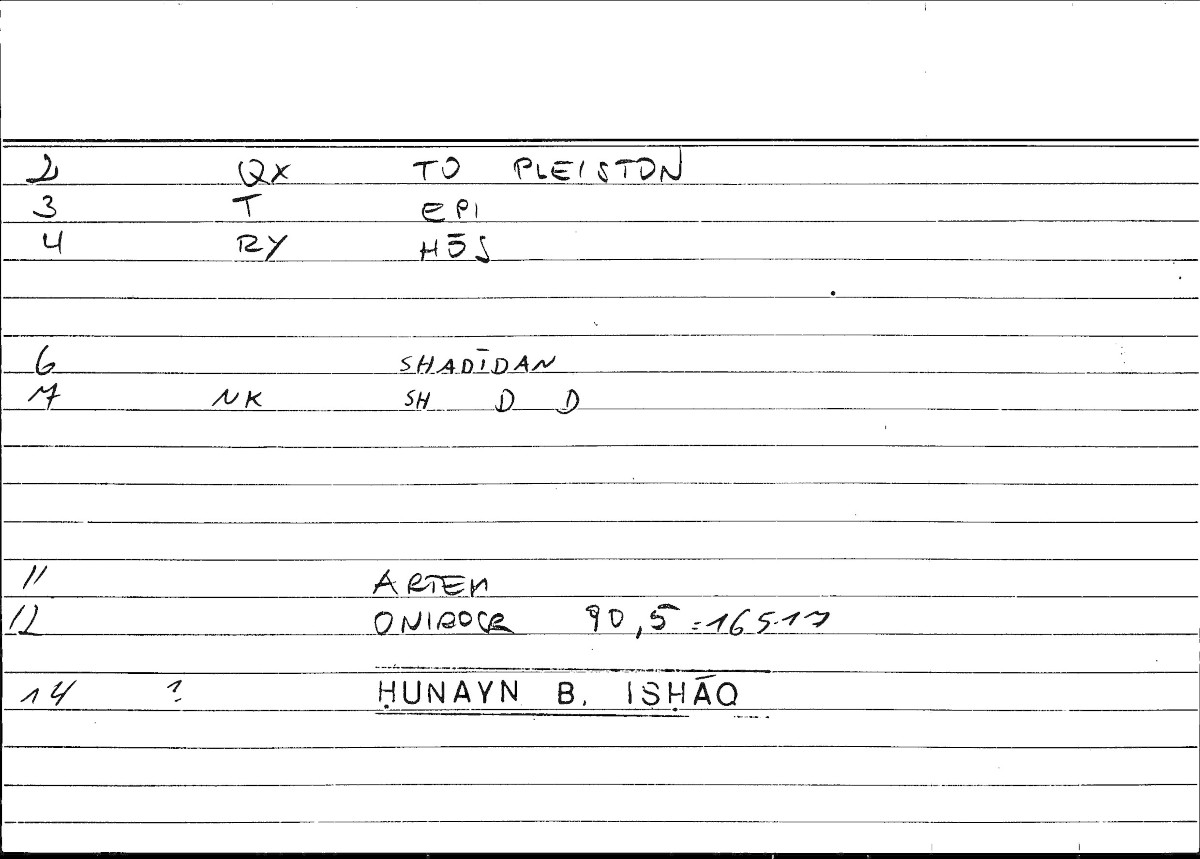 2 QX TO PLEISTON
3 T EPI
4 RY HŌS
6 SHADĪDAN
7 NK SH D D
11 ARTEM
12 ONIROCR 90,5 = 165.17
14 ? ḤUNAYN B. ISḤĀQ